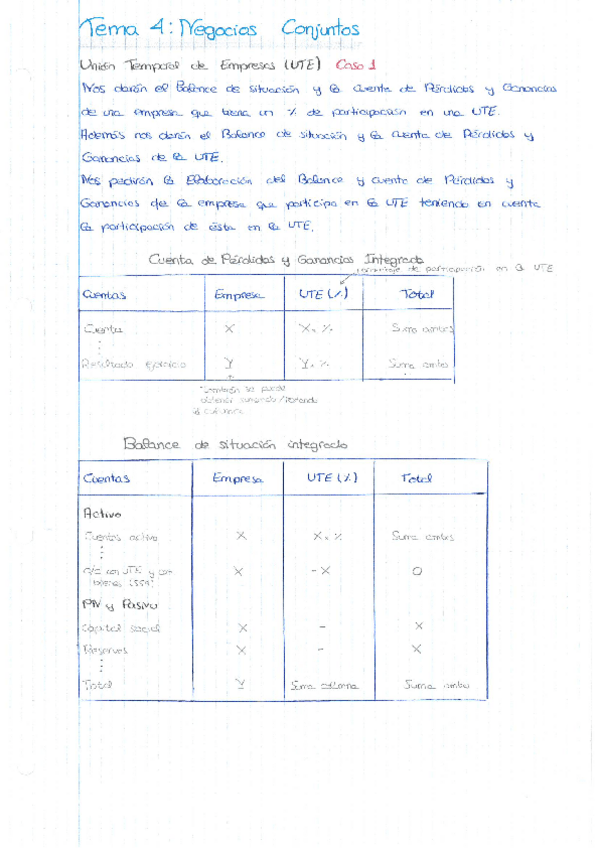 Tema 4: Negocios Conjuntos
Unión Temporal de Empresas (UTE) Caso 1
Nos darán el Balance de situación y la cuenta de Pérdidas y Ganancias
de una empresa que tiene un % de participación en una UTE.
Además nos darán el Balance de situación y la cuenta de Pérdidas y
Ganancias de la UTE.
Nos pedirán la Elaboración del Balance y cuenta de Pérdidas y
Ganancias de la empresa que participa en la UTE teniendo en cuenta
la participación de ésta en la UTE.
Cuenta de Pérdidas y Ganancias Integrada
porcentaje de participación en la UTE
Cuentas Empresa UTE (%) Total
Cuenta X X x % Suma ambas
Resultado ejercicio Y Y x % Suma ambas
También se puede
obtener sumando/restando
la columna
Balance de situación integrado
Cuentas Empresa UTE (%) Total
Activo
Cuentas activo X X x % Suma ambas
c/c con UTE y
(554) X - X 0
PN y Pasivo
Capital social X - X
Reservas X - X
Total Y Suma columna Suma ambas